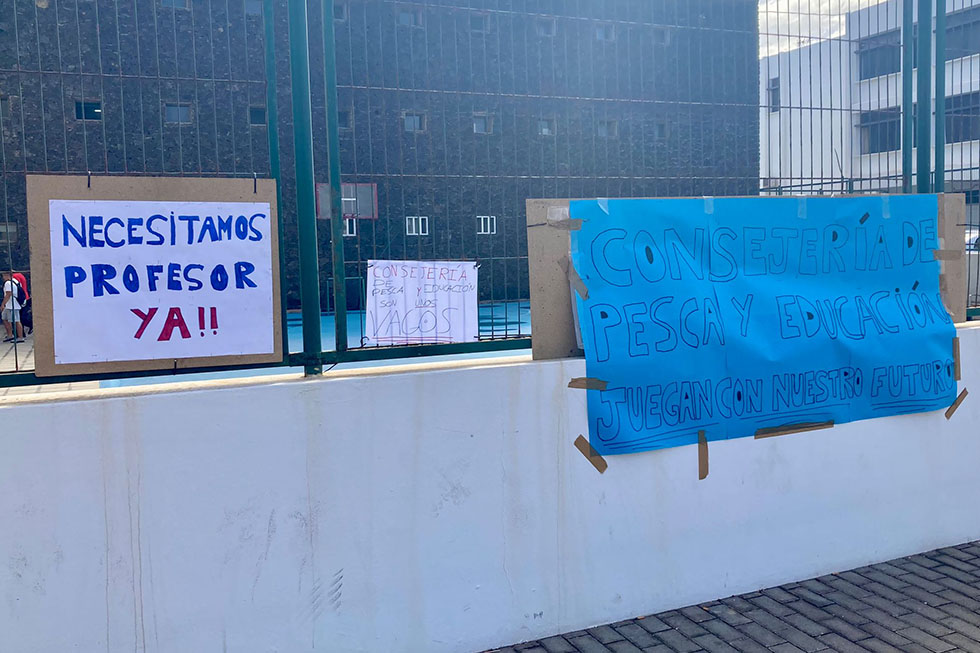 NECESITAMOS
PROFESOR
YA!!
CONSEJERÍA
DE
PESCA Y EDUCACIÓN
SON UNOS
VAGOS
CONSEJERÍA DE
PESCA Y EDUCACIÓN
JUEGAN CON NUESTRO FUTURO